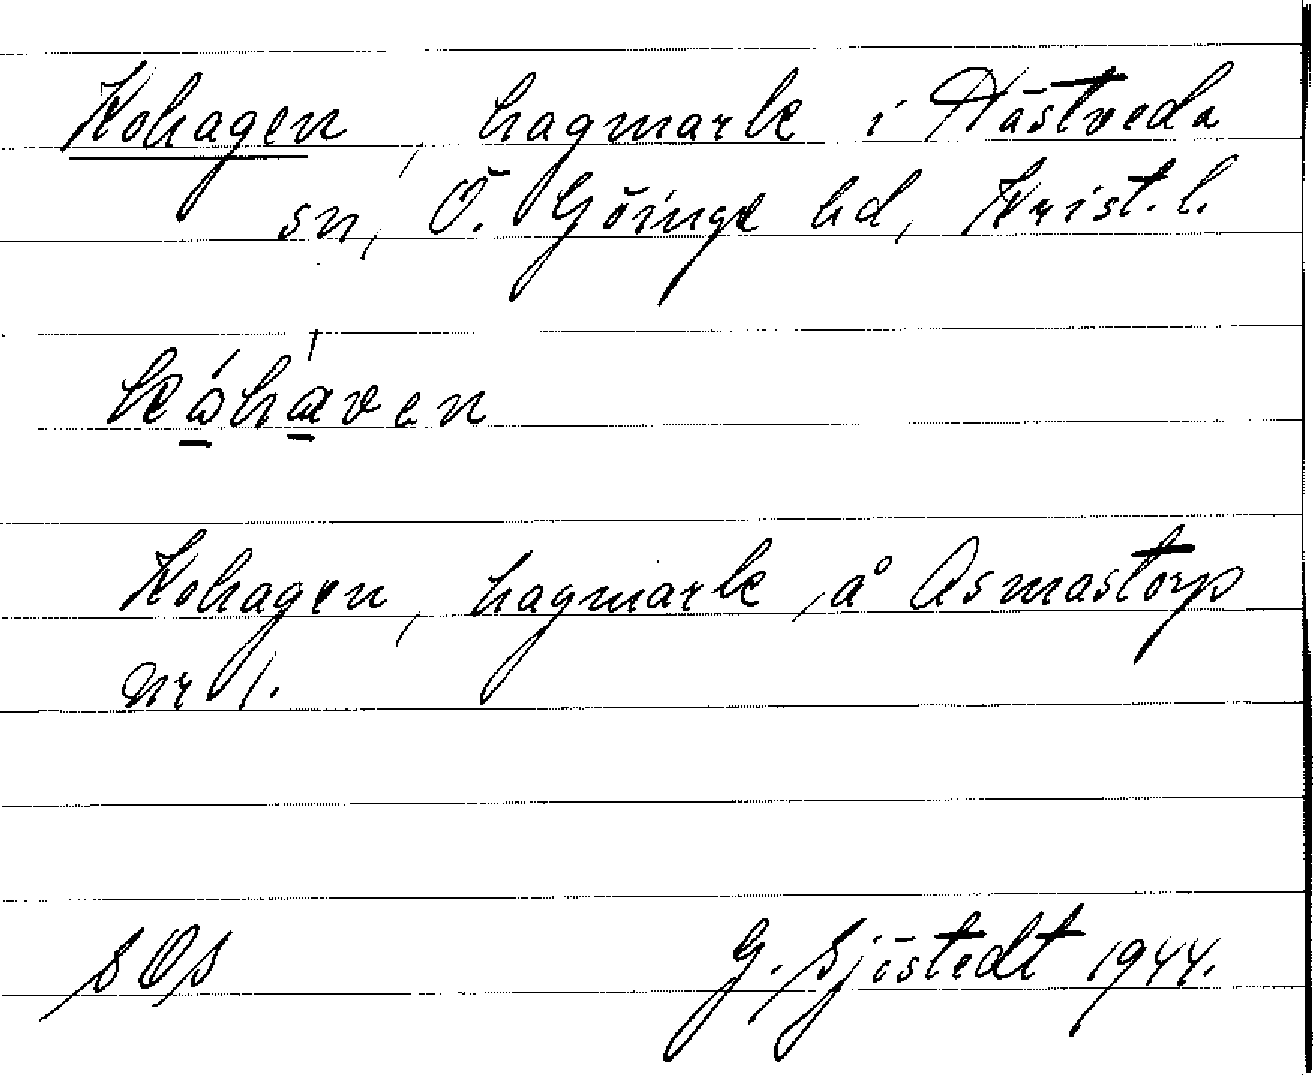 Kohagen, hagmark i Hästveda
sn, Ö. Göinge hd, Krist. l.
Kohagen, hagmark, å Asmastorp
Nr 1.
G. Sjöstedt 1944.